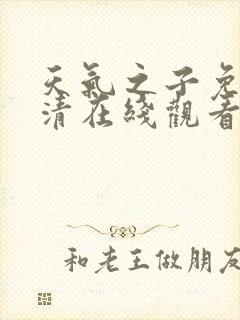 天氣之子免
清在綫觀看
和老王做朋友